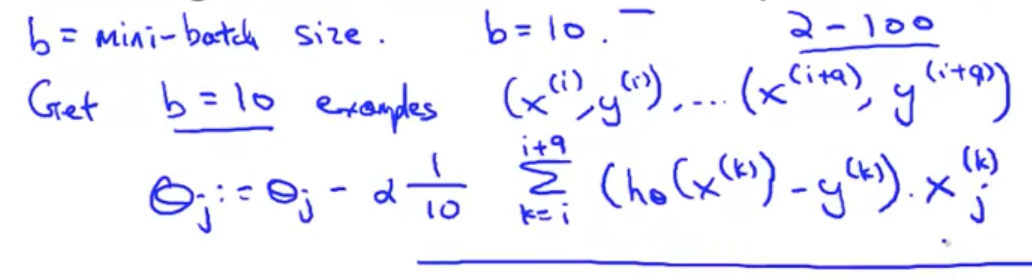 b = Mini-batch size. b = 10. 2 - 100
Get b = 10 examples (x^(i), y^(i)), ... (x^(i+9), y^(i+9))
θ_j := θ_j - α 1/10 Σ_{k=i}^{i+9} (h_θ(x^(k)) - y^(k)) . x_j^(k)